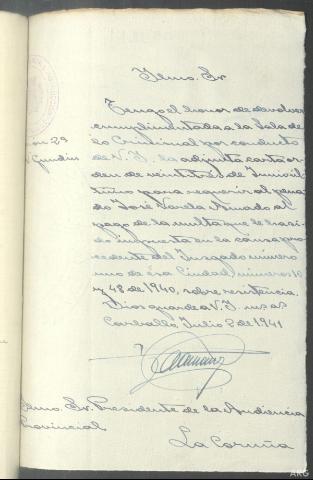 Ilmo. Sr
Tengo el honor de devolver
cumplimentada a la Sala de
lo Criminal por conducto
de V.I. la adjunta carta or-
den de veintitrés de Junio úl-
timo para requerir al pena-
do José Varela Amado al
pago de la multa que le ha si-
do impuesta en la causa pro-
cedente del Juzgado número
uno de esa Ciudad, número 10
y 48 de 1940, sobre resistencia.
Dios guarde a V.I. m. as.
Carballo Julio 2 de 1941
Ilmo. Sr. Presidente de la Audiencia
Provincial
La Coruña
ARG